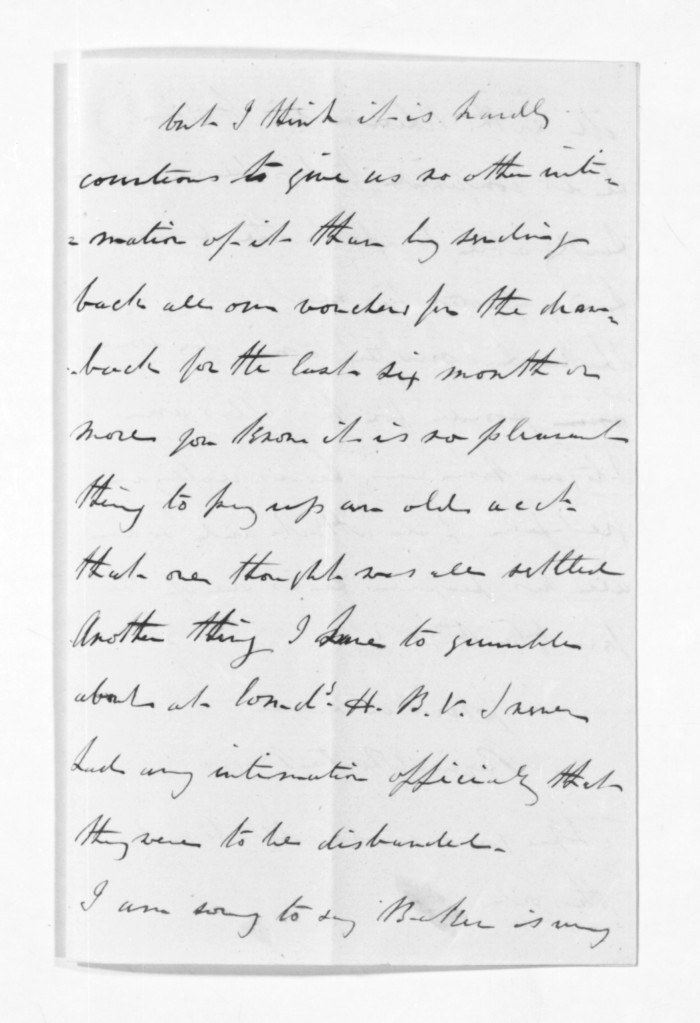 but I think it is hardly
courteous to give us no other inti=
=mation of it than by sending
back all our vouchers for the draw=
-back for the last six month or
more you know it is no pleasant
thing to pay up an old acct
that one thought was all settled
Another thing I have to grumble
about at H. B. V. I never
had any intimation officially that
they were to be disbanded.
I am sorry to say Baker is very